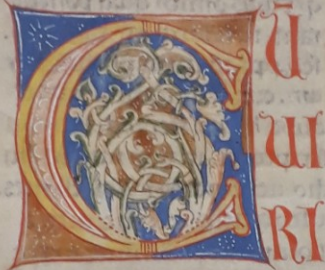 CŪ
UI
RI